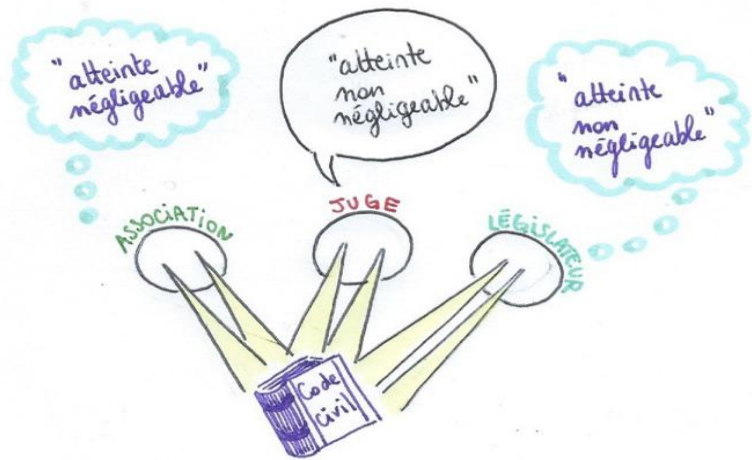 "atteinte
négligeable"
"atteinte
non
négligeable"
"atteinte
non
négligeable"
ASSOCIATION
JUGE
LÉGISLATEUR
Code
civil